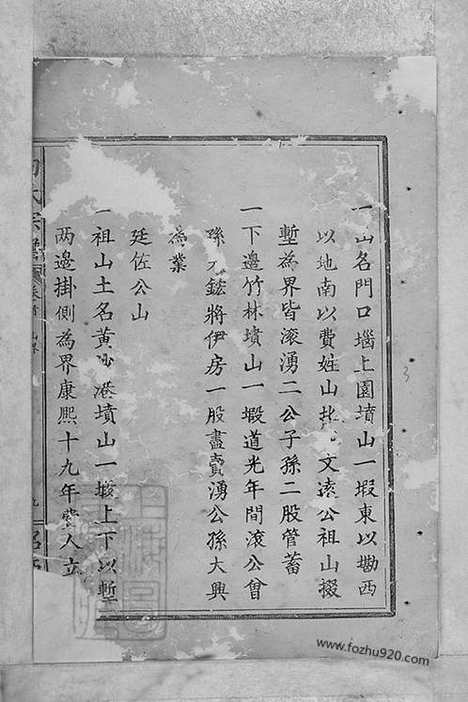 一山名門口墈上園墳山一塅東以墈西
以地南以費姓山北文遠公祖山掇
塹為界皆滾湧二公子孫二股管蓄
一下邊竹林墳山一塅道光年間滾公曾
孫鋐將伊房一股盡賣湧公孫大興
為業
廷佐公山
一祖山土名黃沙港墳山一塅上下以塹
兩邊掛側為界康熙十九年人立
氏宗譜
www.fozhu920.com